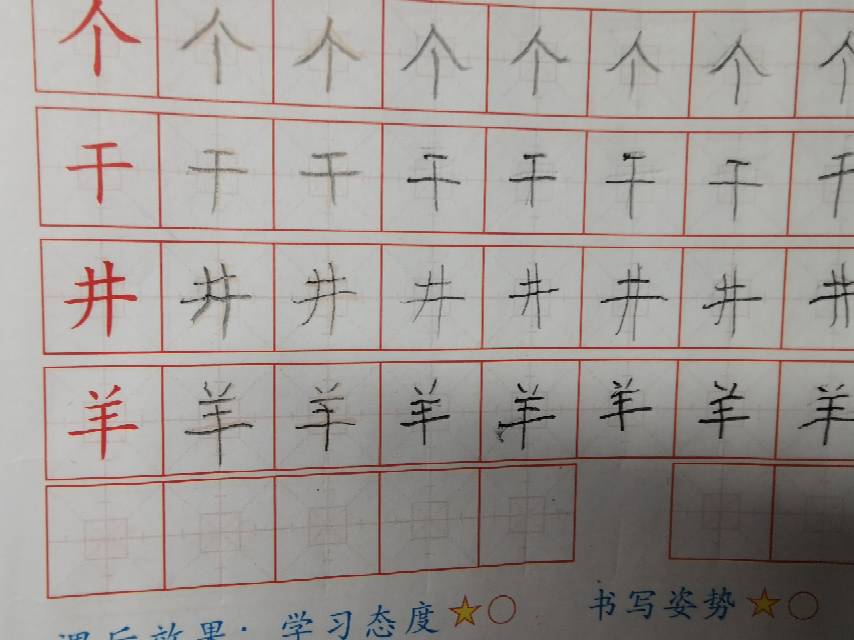 个个个个个个个个
干干干干干干干干
井井井井井井井井
羊羊羊羊羊羊羊羊
课后效果：学习态度 书写姿势